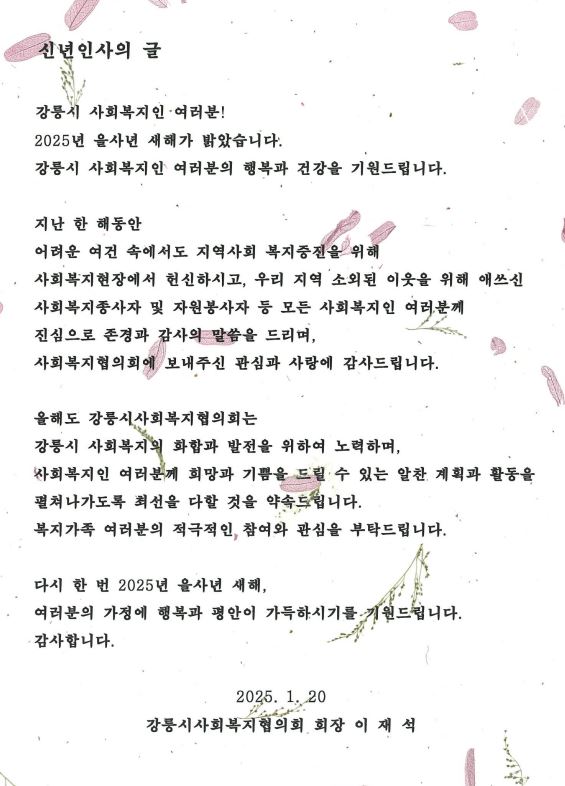 신년인사의 글
강릉시 사회복지인 여러분!
2025년 을사년 새해가 밝았습니다.
강릉시 사회복지인 여러분의 행복과 건강을 기원드립니다.
지난 한 해동안
어려운 여건 속에서도 지역사회 복지증진을 위해
사회복지현장에서 헌신하시고, 우리 지역 소외된 이웃을 위해 애쓰신
사회복지종사자 및 자원봉사자 등 모든 사회복지인 여러분께
진심으로 존경과 감사의 말씀을 드리며,
사회복지협의회에 보내주신 관심과 사랑에 감사드립니다.
올해도 강릉시사회복지협의회는
강릉시 사회복지의 화합과 발전을 위하여 노력하며,
사회복지인 여러분께 희망과 기쁨을 드릴 수 있는 알찬 계획과 활동을
펼쳐나가도록 최선을 다할 것을 약속드립니다.
복지가족 여러분의 적극적인 참여와 관심을 부탁드립니다.
다시 한 번 2025년 을사년 새해,
여러분의 가정에 행복과 평안이 가득하시기를 기원드립니다.
감사합니다.
2025. 1. 20
강릉시사회복지협의회 회장 이 재 석